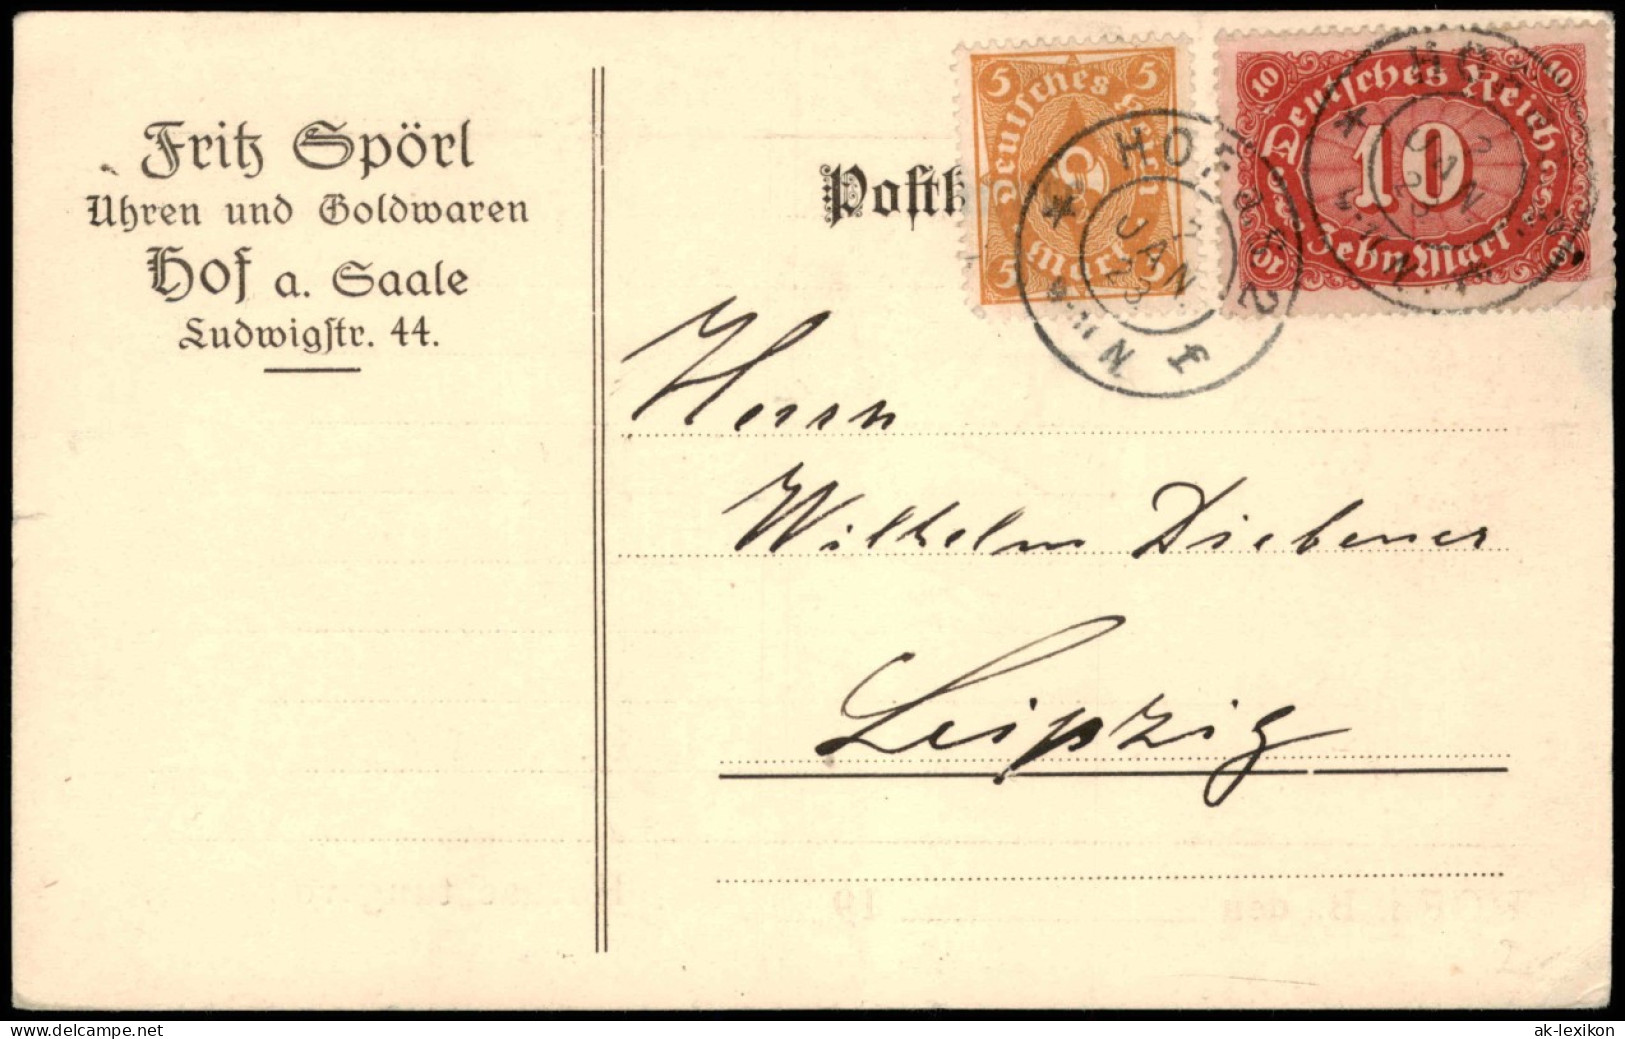 Fritz Spörl
Uhren und Goldwaren
Hof a. Saale
Ludwigstr. 44.
Postk
5 5
Deutsches Reich
5
5 Mark 5
10 10
Deutsches Reich
10
Zehn Mark
10
HOF
2
JAN
23
HOF
2
JAN
23
N
Herrn
Wilhelm Diebener
Leipzig
19
ak-lexikon